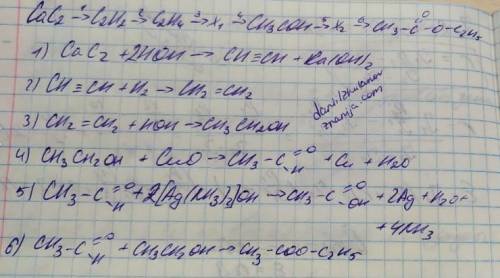 CaC₂ →¹ C₂H₂ →² C₂H₄ →³ X₁ →⁴ CH₃COH →⁵ X₂ →⁶ CH₃-C(=O)-O-C₂H₅
1) CaC₂ + 2HOH → CH≡CH + Ca(OH)₂
2) CH≡CH + H₂ → CH₂=CH₂
3) CH₂=CH₂ + HOH → CH₃CH₂OH
znanija.com
4) CH₃CH₂OH + CuO → CH₃-C(=O)-H + Cu + H₂O
5) CH₃-C(=O)-H + 2[Ag(NH₃)₂]OH → CH₃-C(=O)-OH + 2Ag + H₂O +
+ 4NH₃
6) CH₃-C(=O)-H + CH₃CH₂OH → CH₃-COO-C₂H₅